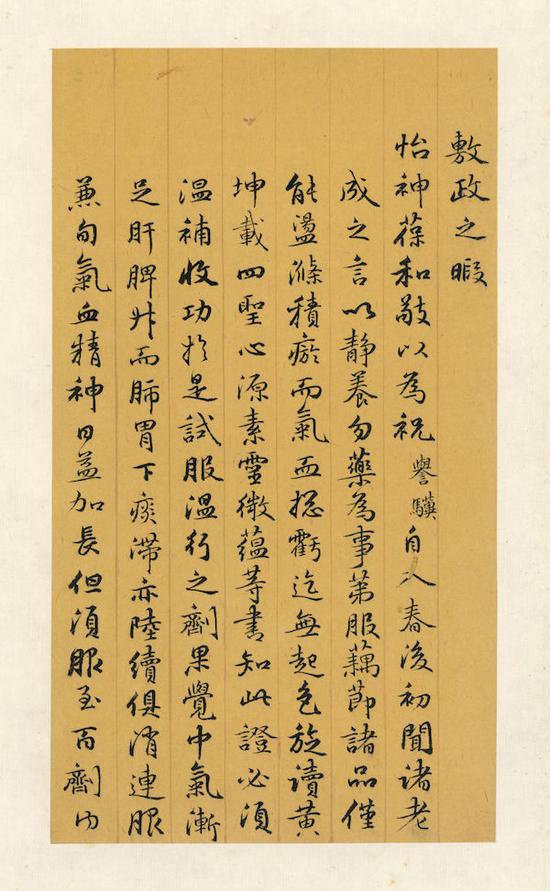 敷政之暇
怡神葆和敬以為祝譽驥自入春後初聞諸老
成之言以靜養勿藥為事苐服藕節諸品僅
能盪滌積瘀而氣血揔虧迄無起色旋讀黃
坤載四聖心源素靈微蘊等書知此證必須
溫補收功於是試服溫行之劑果覺中氣漸
足肝脾升而肺胃下痰滯亦陸續俱消連服
兼旬氣血精神日益加長但須服至百劑內